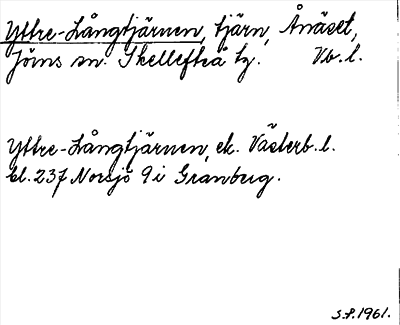 Yttre-Långtjärnen, tjärn, Ånäset,
Jörns sn. Skellefteå tg. Vb.l.
Yttre-Långtjärnen, ek. Västerb.l.
bl. 237 Norsjö 9i Granberg.
S.P. 1961.